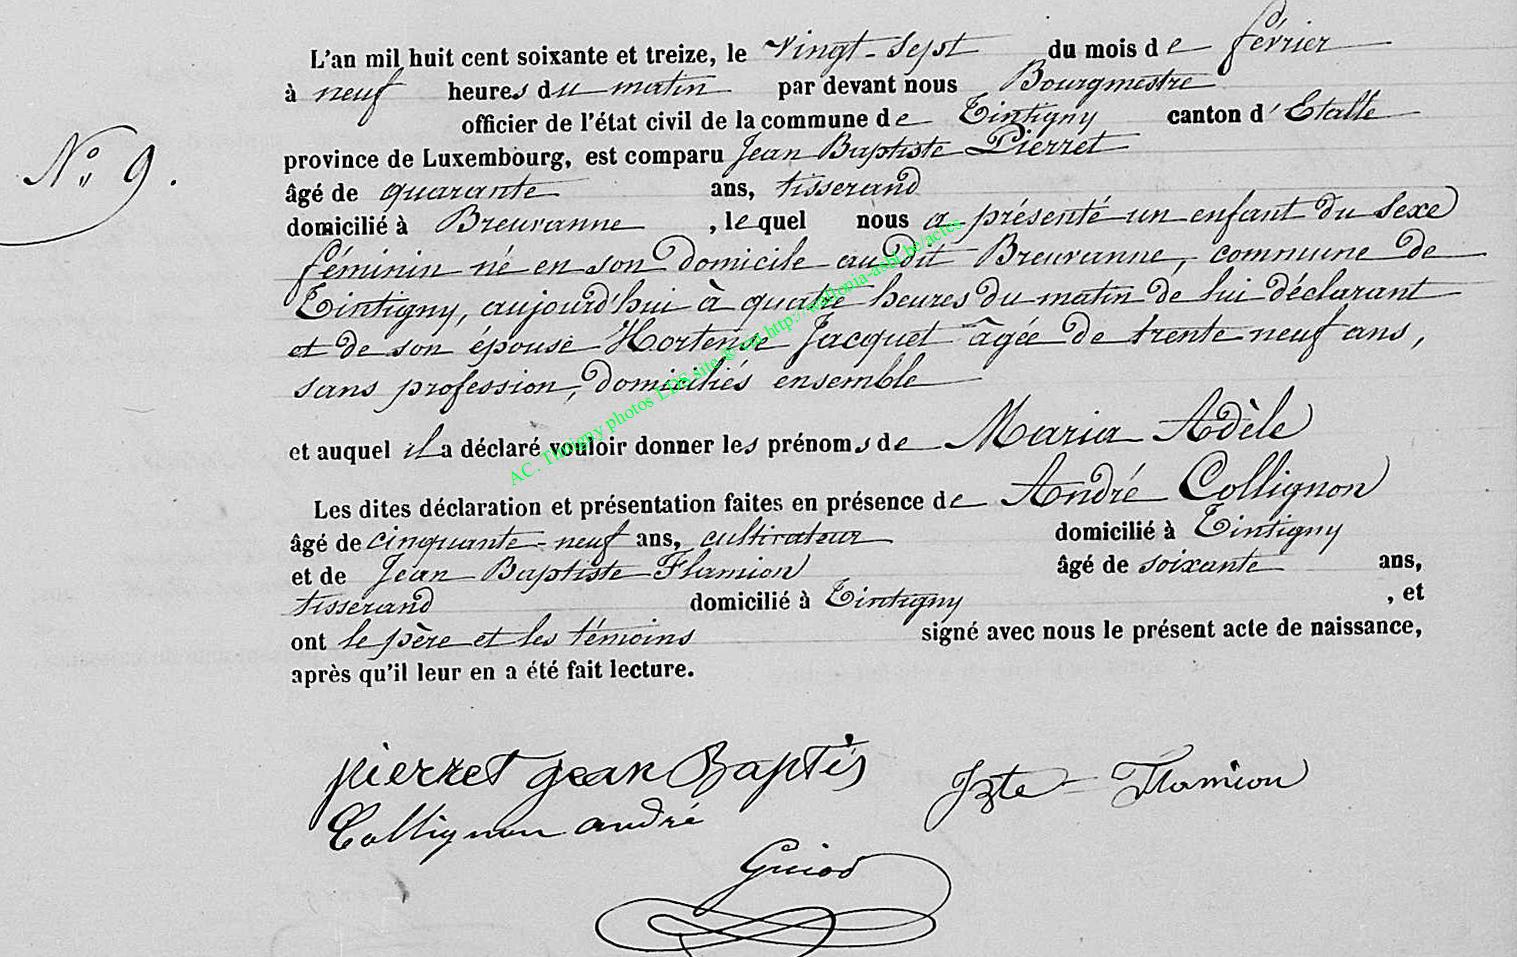 L'an mil huit cent soixante et treize, le vingt-sept du mois de février
à neuf heures du matin par devant nous Bourgmestre
officier de l'état civil de la commune de Tintigny canton d'Etalle
N° 9.
province de Luxembourg, est comparu Jean Baptiste Pierret
âgé de quarante ans, tisserand
domicilié à Breuvanne, lequel nous a présenté un enfant du sexe
féminin né en son domicile au dit Breuvanne, commune de
Tintigny, aujourd'hui à quatre heures du matin de lui déclarant
et de son épouse Hortense Jacquet âgée de trente neuf ans,
sans profession, domiciliés ensemble
et auquel il a déclaré vouloir donner les prénoms de Maria Adèle
Les dites déclaration et présentation faites en présence de André Collignon
âgé de cinquante-neuf ans, cultivateur domicilié à Tintigny
et de Jean Baptiste Flamion âgé de soixante ans,
tisserand domicilié à Tintigny, et
ont le père et les témoins signé avec nous le présent acte de naissance,
après qu'il leur en a été fait lecture.
pierret jean Baptis
Jbte Flamion
Collignon andré
Guiod
AC. Tintigny photos LDS site © sur http://wallonia-asbl.be/actes